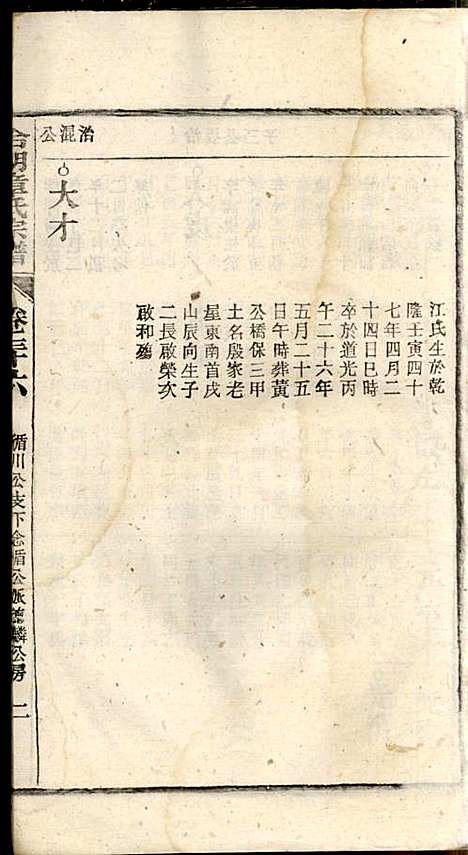 治混公
大才
江氏生於乾
隆壬寅四十
七年四月二
十四日巳時
卒於道光丙
午二十六年
五月二十五
日午時葬黃
公橋保三甲
土名殷家老
星東南首戌
山辰向生子
二長啟榮次
啟和殤
章氏宗譜
卷三十六
循川公支下念循公派德麟公房
二